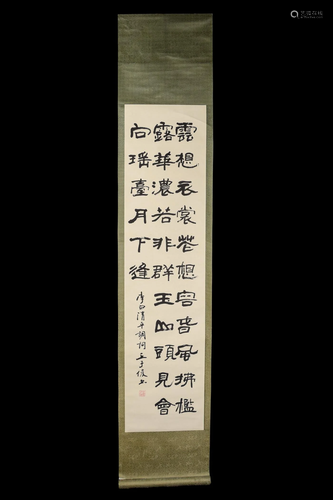 雲想衣裳花想容春風拂檻
露華濃若非群玉山頭見會
向瑶臺月下逢
李白清平調詞